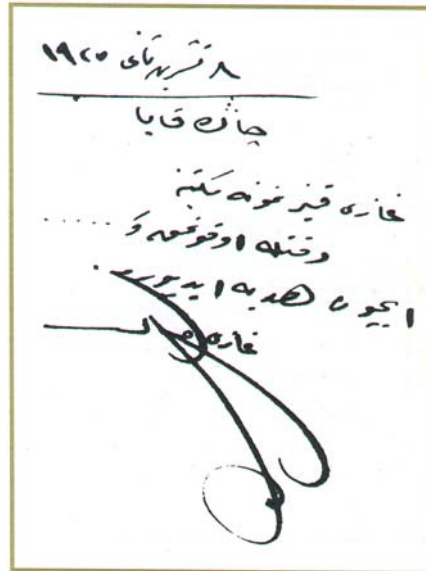 ٨ تشرين ثانى ١٩٢٧
چان قايا
غازى قيز نمونه مكتبنه
وقتله اوقونمق و .....
ايچون هديه ايديورم.
غازى م. كمال